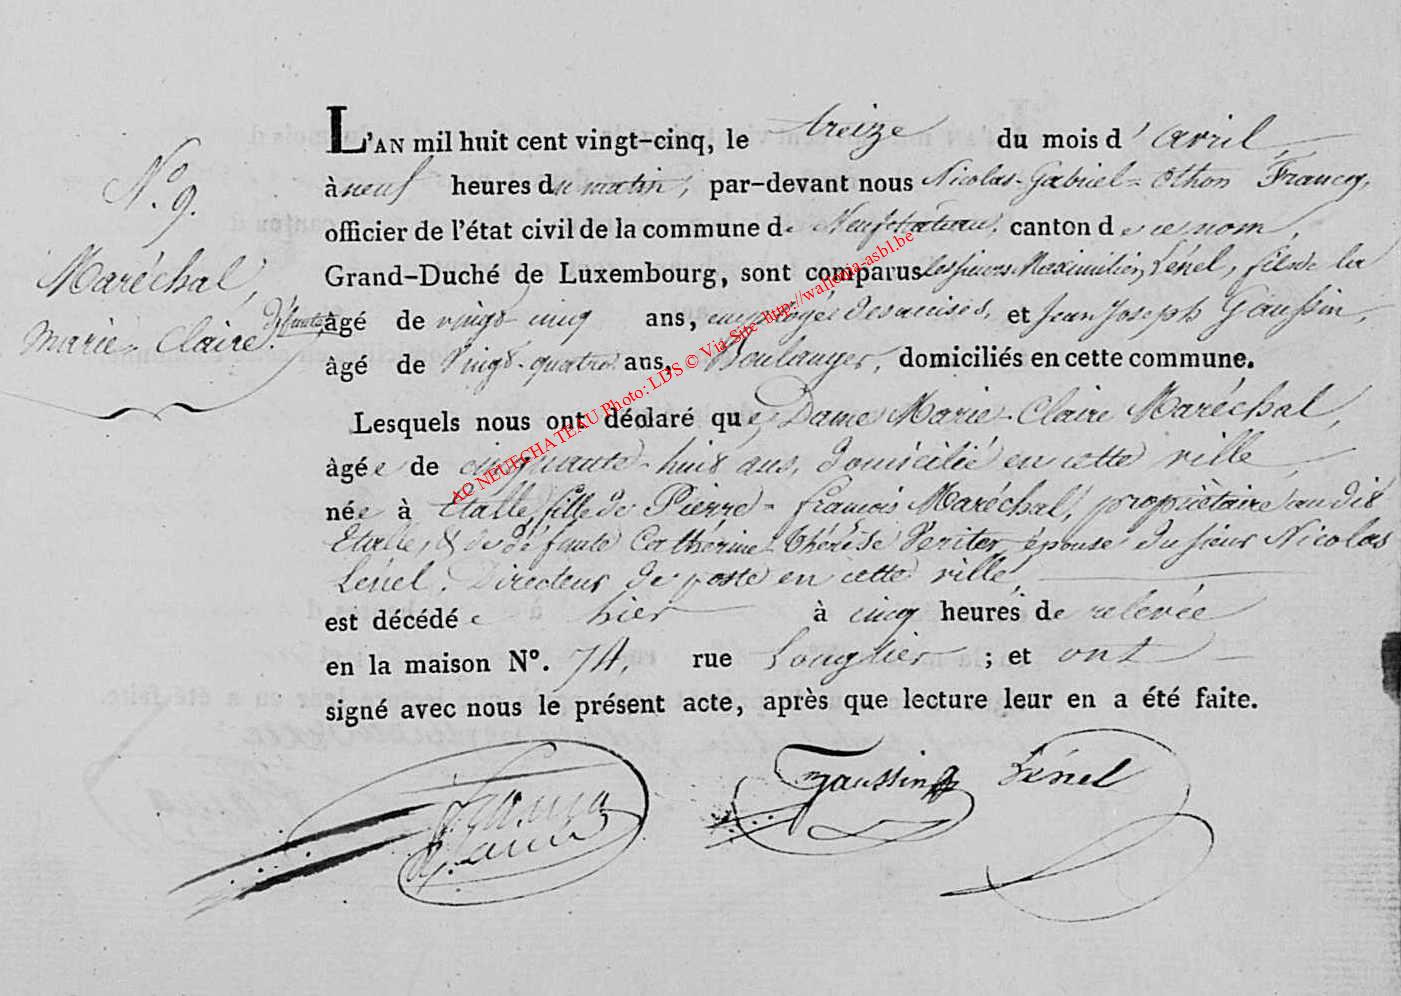 N.° 9.
Maréchal,
Marie-Claire.
défunte
L'AN mil huit cent vingt-cinq, le treize du mois d'avril,
à neuf heures du matin, par-devant nous Nicolas-Gabriel-Othon Francq,
officier de l'état civil de la commune de Neufchateau, canton de ce nom,
Grand-Duché de Luxembourg, sont comparus les sieurs Maximilien Lénel, fils de la
âgé de vingt cinq ans, employé des accises, et Jean Joseph Gaussin,
âgé de vingt-quatre ans, Boulanger, domiciliés en cette commune.
Lesquels nous ont déclaré que Dame Marie-Claire Maréchal,
âgée de cinquante-huit ans, domicilié en cette ville,
née à Etalle, fille de Pierre-François Maréchal, propriètaire au dit
Etalle, & de défunte Cathérine-Thérèse Veriter, épouse du sieur Nicolas
Lénel, Directeur de poste en cette ville,
est décédée hier à cinq heures de relevée
en la maison N°. 74, rue Longlier ; et ont
signé avec nous le présent acte, après que lecture leur en a été faite.
Gaussin Lénel
AC NEUFCHATEAU Photo: LDS © Via Site http://wallonia-asbl.be